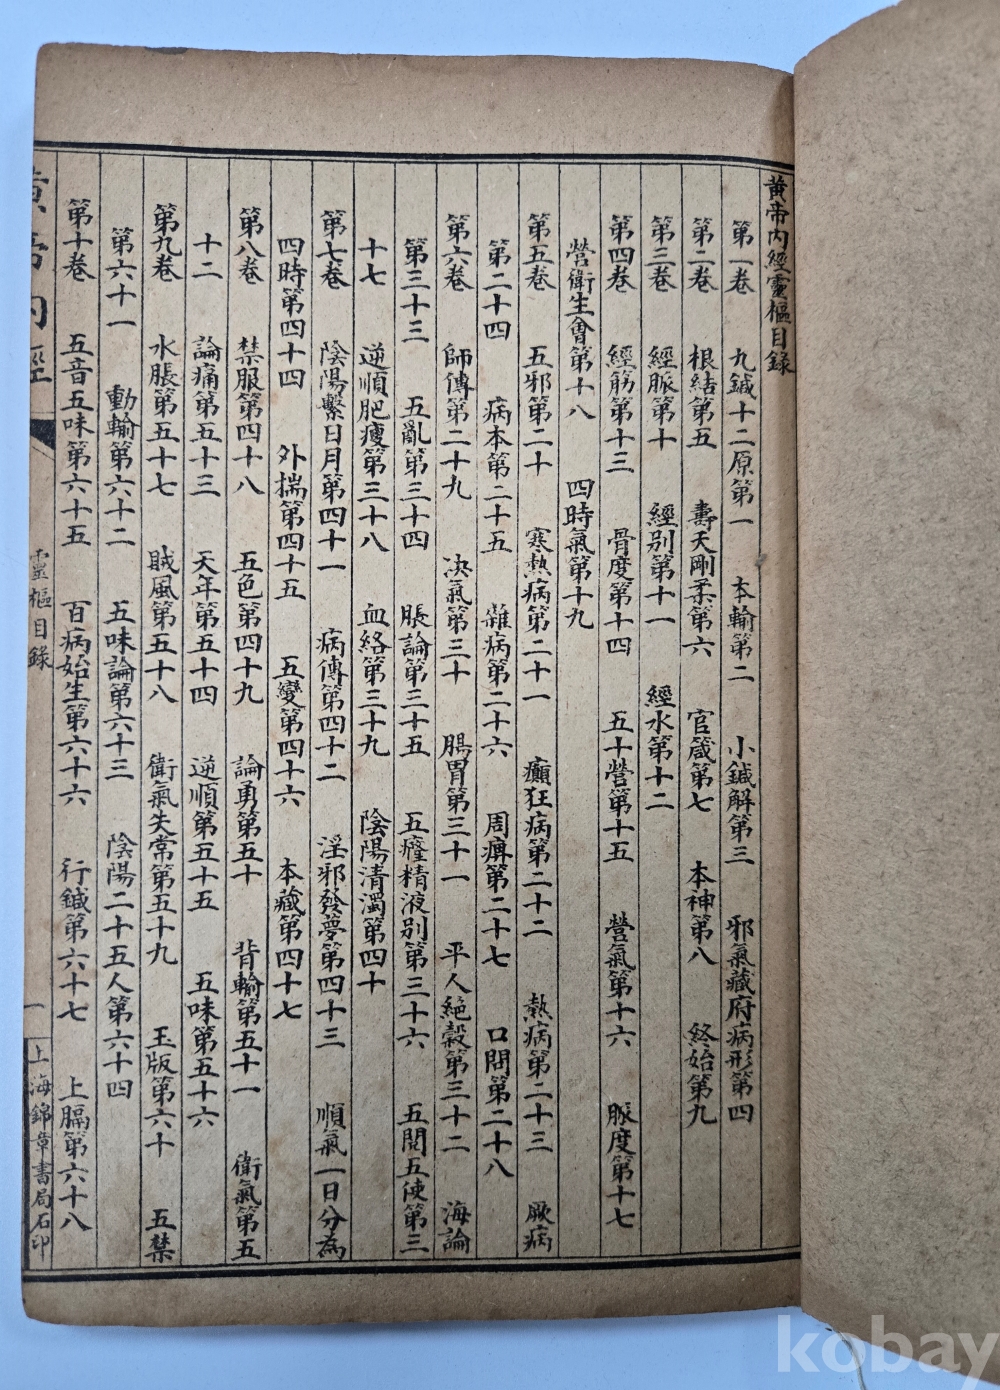 黃帝內經靈樞目錄
第一卷 九鍼十二原第一 本輸第二 小鍼解第三 邪氣藏府病形第四
第二卷 根結第五 壽夭剛柔第六 官箴第七 本神第八 終始第九
第三卷 經脈第十 經別第十一 經水第十二
第四卷 經筋第十三 骨度第十四 五十營第十五 營氣第十六 脈度第十七
營衛生會第十八 四時氣第十九
第五卷 五邪第二十 寒熱病第二十一 癲狂病第二十二 熱病第二十三 厥病
第二十四 病本第二十五 雜病第二十六 周痺第二十七 口問第二十八
第六卷 師傳第二十九 决氣第三十 腸胃第三十一 平人絕穀第三十二 海論
第三十三 五亂第三十四 脹論第三十五 五癃精液別第三十六 五閱五使第三
十七 逆順肥瘦第三十八 血絡第三十九 陰陽清濁第四十
第七卷 陰陽繫日月第四十一 病傳第四十二 淫邪發夢第四十三 順氣一日分為
四時第四十四 外揣第四十五 五變第四十六 本藏第四十七
第八卷 禁服第四十八 五色第四十九 論勇第五十 背輸第五十一 衛氣第五
十二 論痛第五十三 天年第五十四 逆順第五十五 五味第五十六
第九卷 水脹第五十七 賊風第五十八 衛氣失常第五十九 玉版第六十 五禁
第六十一 動輸第六十二 五味論第六十三 陰陽二十五人第六十四
第十卷 五音五味第六十五 百病始生第六十六 行鍼第六十七 上膈第六十八
黃帝內經 靈樞目錄 一 上海錦章書局石印
kobay